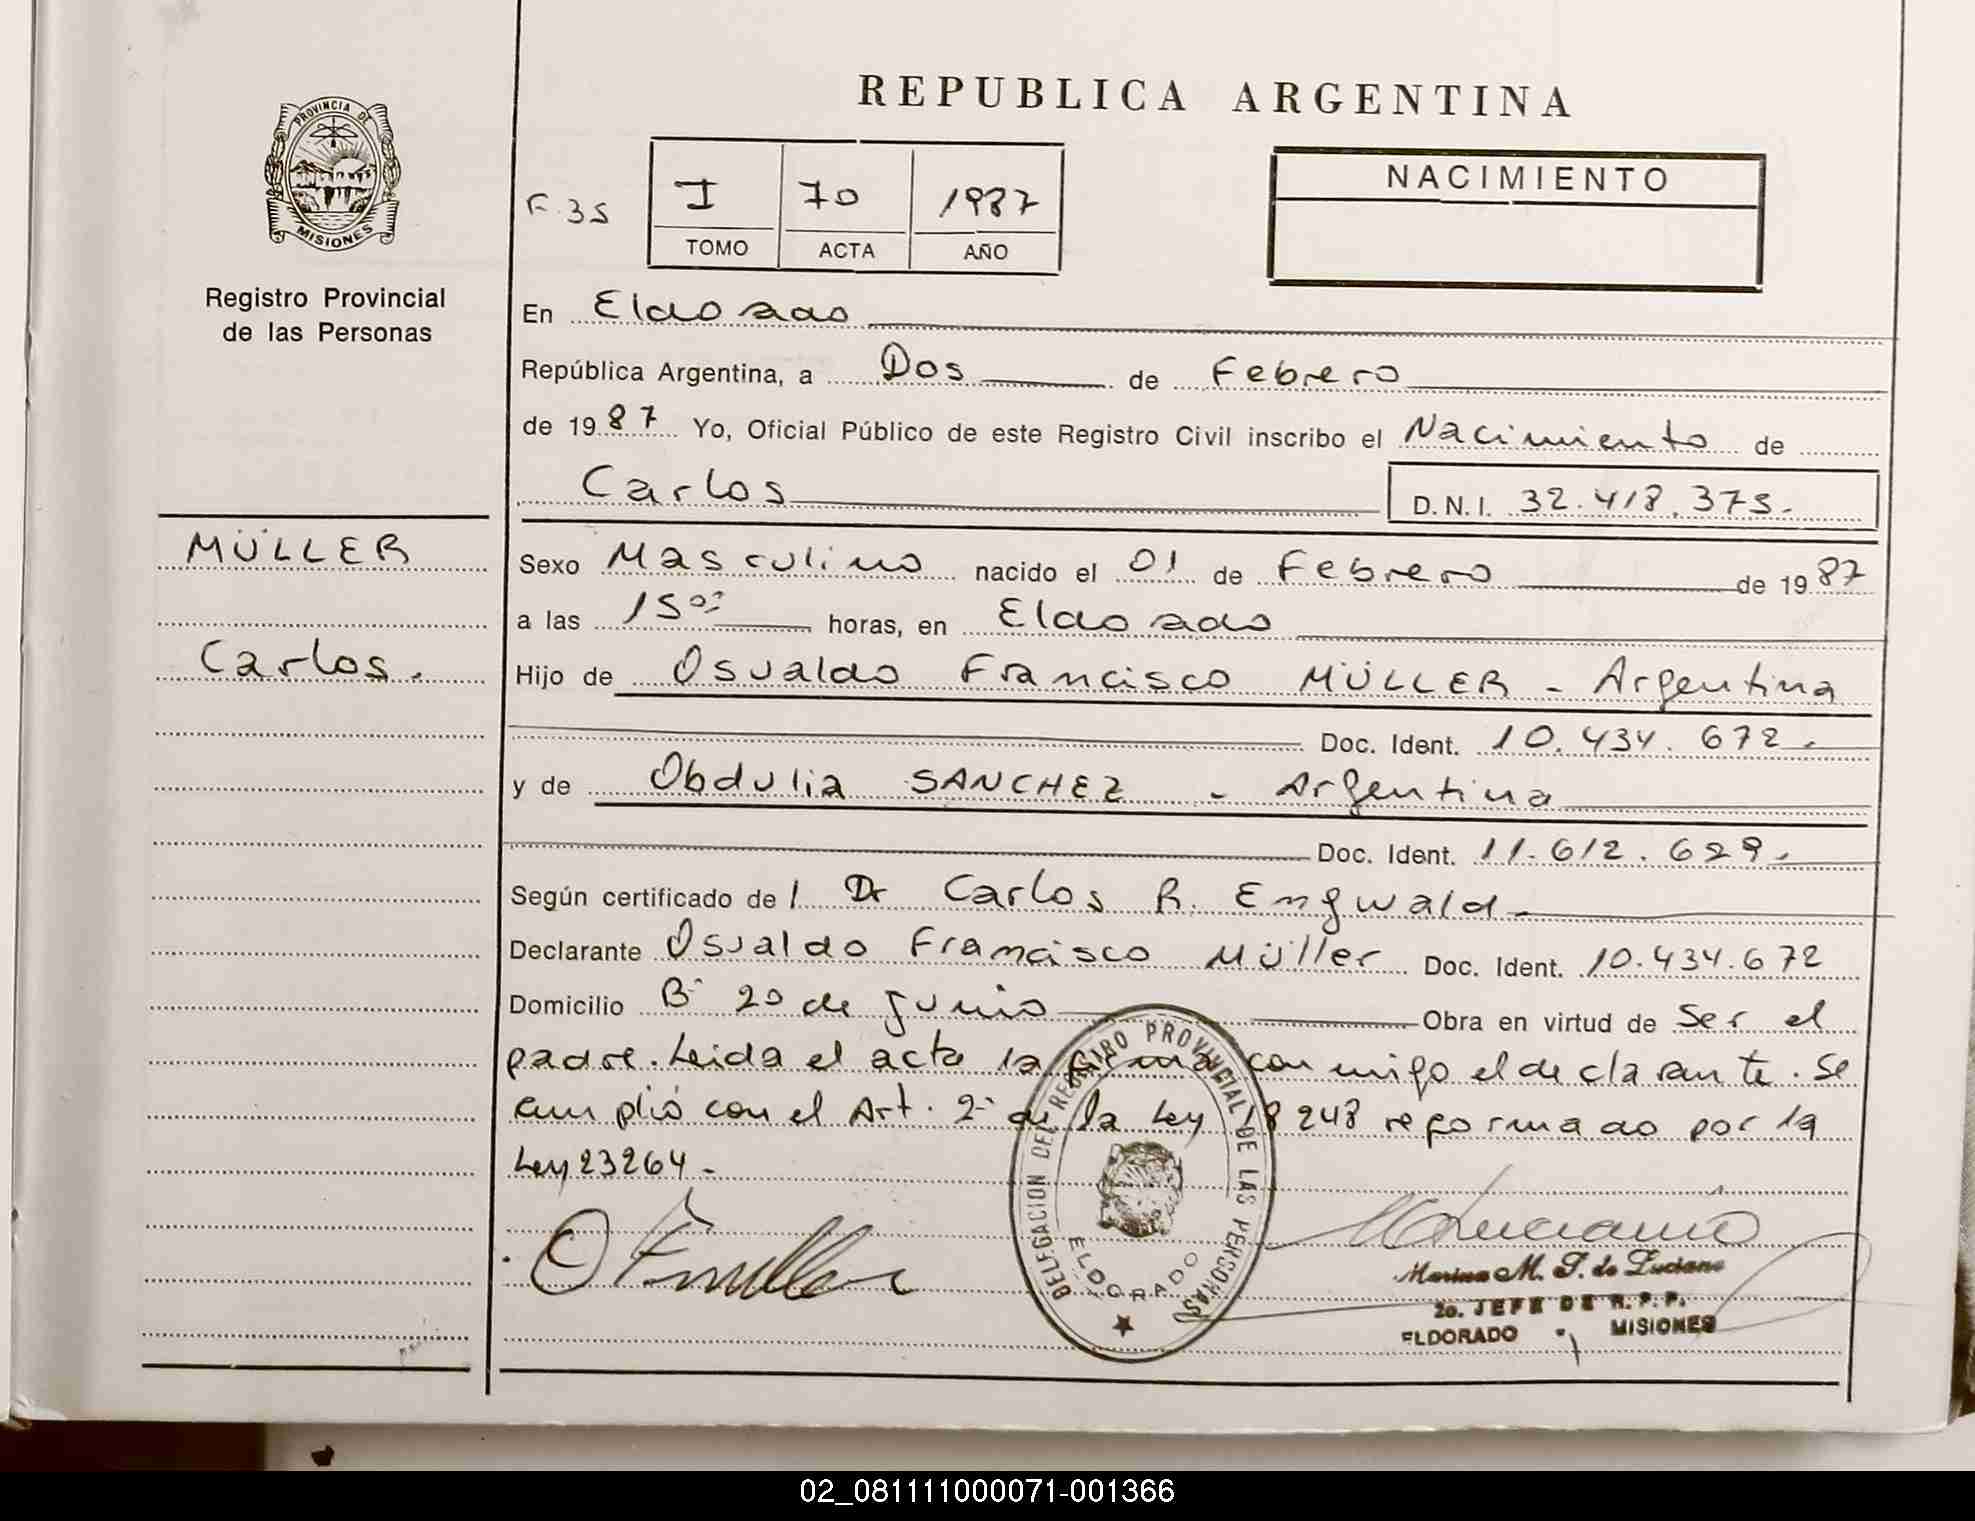 REPUBLICA ARGENTINA
PROVINCIA DE
MISIONES
Registro Provincial
de las Personas
F. 35
I 70 1987
TOMO ACTA AÑO
NACIMIENTO
En Eldorado
República Argentina, a Dos de Febrero
de 1987 Yo, Oficial Público de este Registro Civil inscribo el Nacimiento de
Carlos D.N.I. 32.418.375.
MÜLLER
Carlos.
Sexo Masculino nacido el 01 de Febrero de 1987
a las 15 00 horas, en Eldorado
Hijo de Osvaldo Francisco MÜLLER - Argentina
Doc. Ident. 10.434.672.
y de Obdulia SANCHEZ - Argentina
Doc. Ident. 11.612.629.
Según certificado de l Dr Carlos R. Engwald.
Declarante Osvaldo Francisco Müller Doc. Ident. 10.434.672
Domicilio Bº 20 de Junio Obra en virtud de Ser el
padre. Leida el acta la firma con migo el declarante. Se
cumplió con el Art. 2º de la Ley 18248 reformado por la
Ley 23264.
DELEGACION DEL REGISTRO PROVINCIAL DE LAS PERSONAS
ELDORADO
O F Müller
M Luciano
Marina M. F. de Luciano
2o. JEFE DE R.P.P.
ELDORADO - MISIONES
02_081111000071-001366